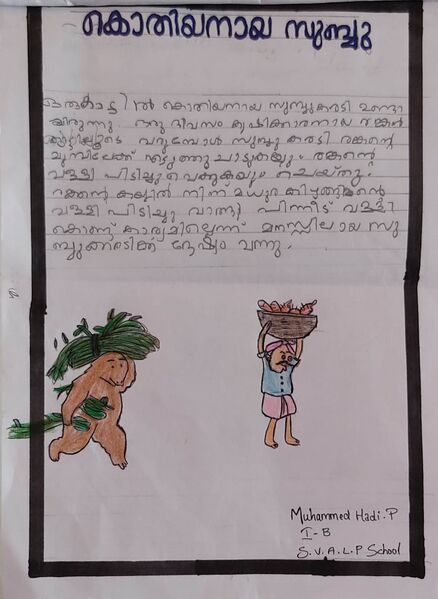 കൊതിയനായ സുബ്ബു
ഒരുകാട്ടിൽ കൊതിയനായ സുബ്ബുകരടി ഉണ്ടാ
യിരുന്നു. ഒരു ദിവസം കൃഷിക്കാരനായ രങ്കൻ
വരുമ്പോൾ സുബ്ബു കരടി രങ്കന്റെ
മുമ്പിലേക്ക് എടുത്തു ചാടുകയും രങ്കന്റെ
വള്ളി പിടിച്ചു വെക്കുകയും ചെയ്തു.
രങ്കന്റെ കയ്യിൽ നിന്ന് മധുരകിഴങ്ങിന്റെ
വള്ളി പിടിച്ചു വാങ്ങി പിന്നീട് വള്ളി
കൊണ്ട് കാര്യമില്ലെന്ന് മനസ്സിലായ സു
ബ്ബുക്കരടിക്ക് ദേഷ്യം വന്നു.
Muhammed Hadi. P
I - B
S.V.A.L.P School